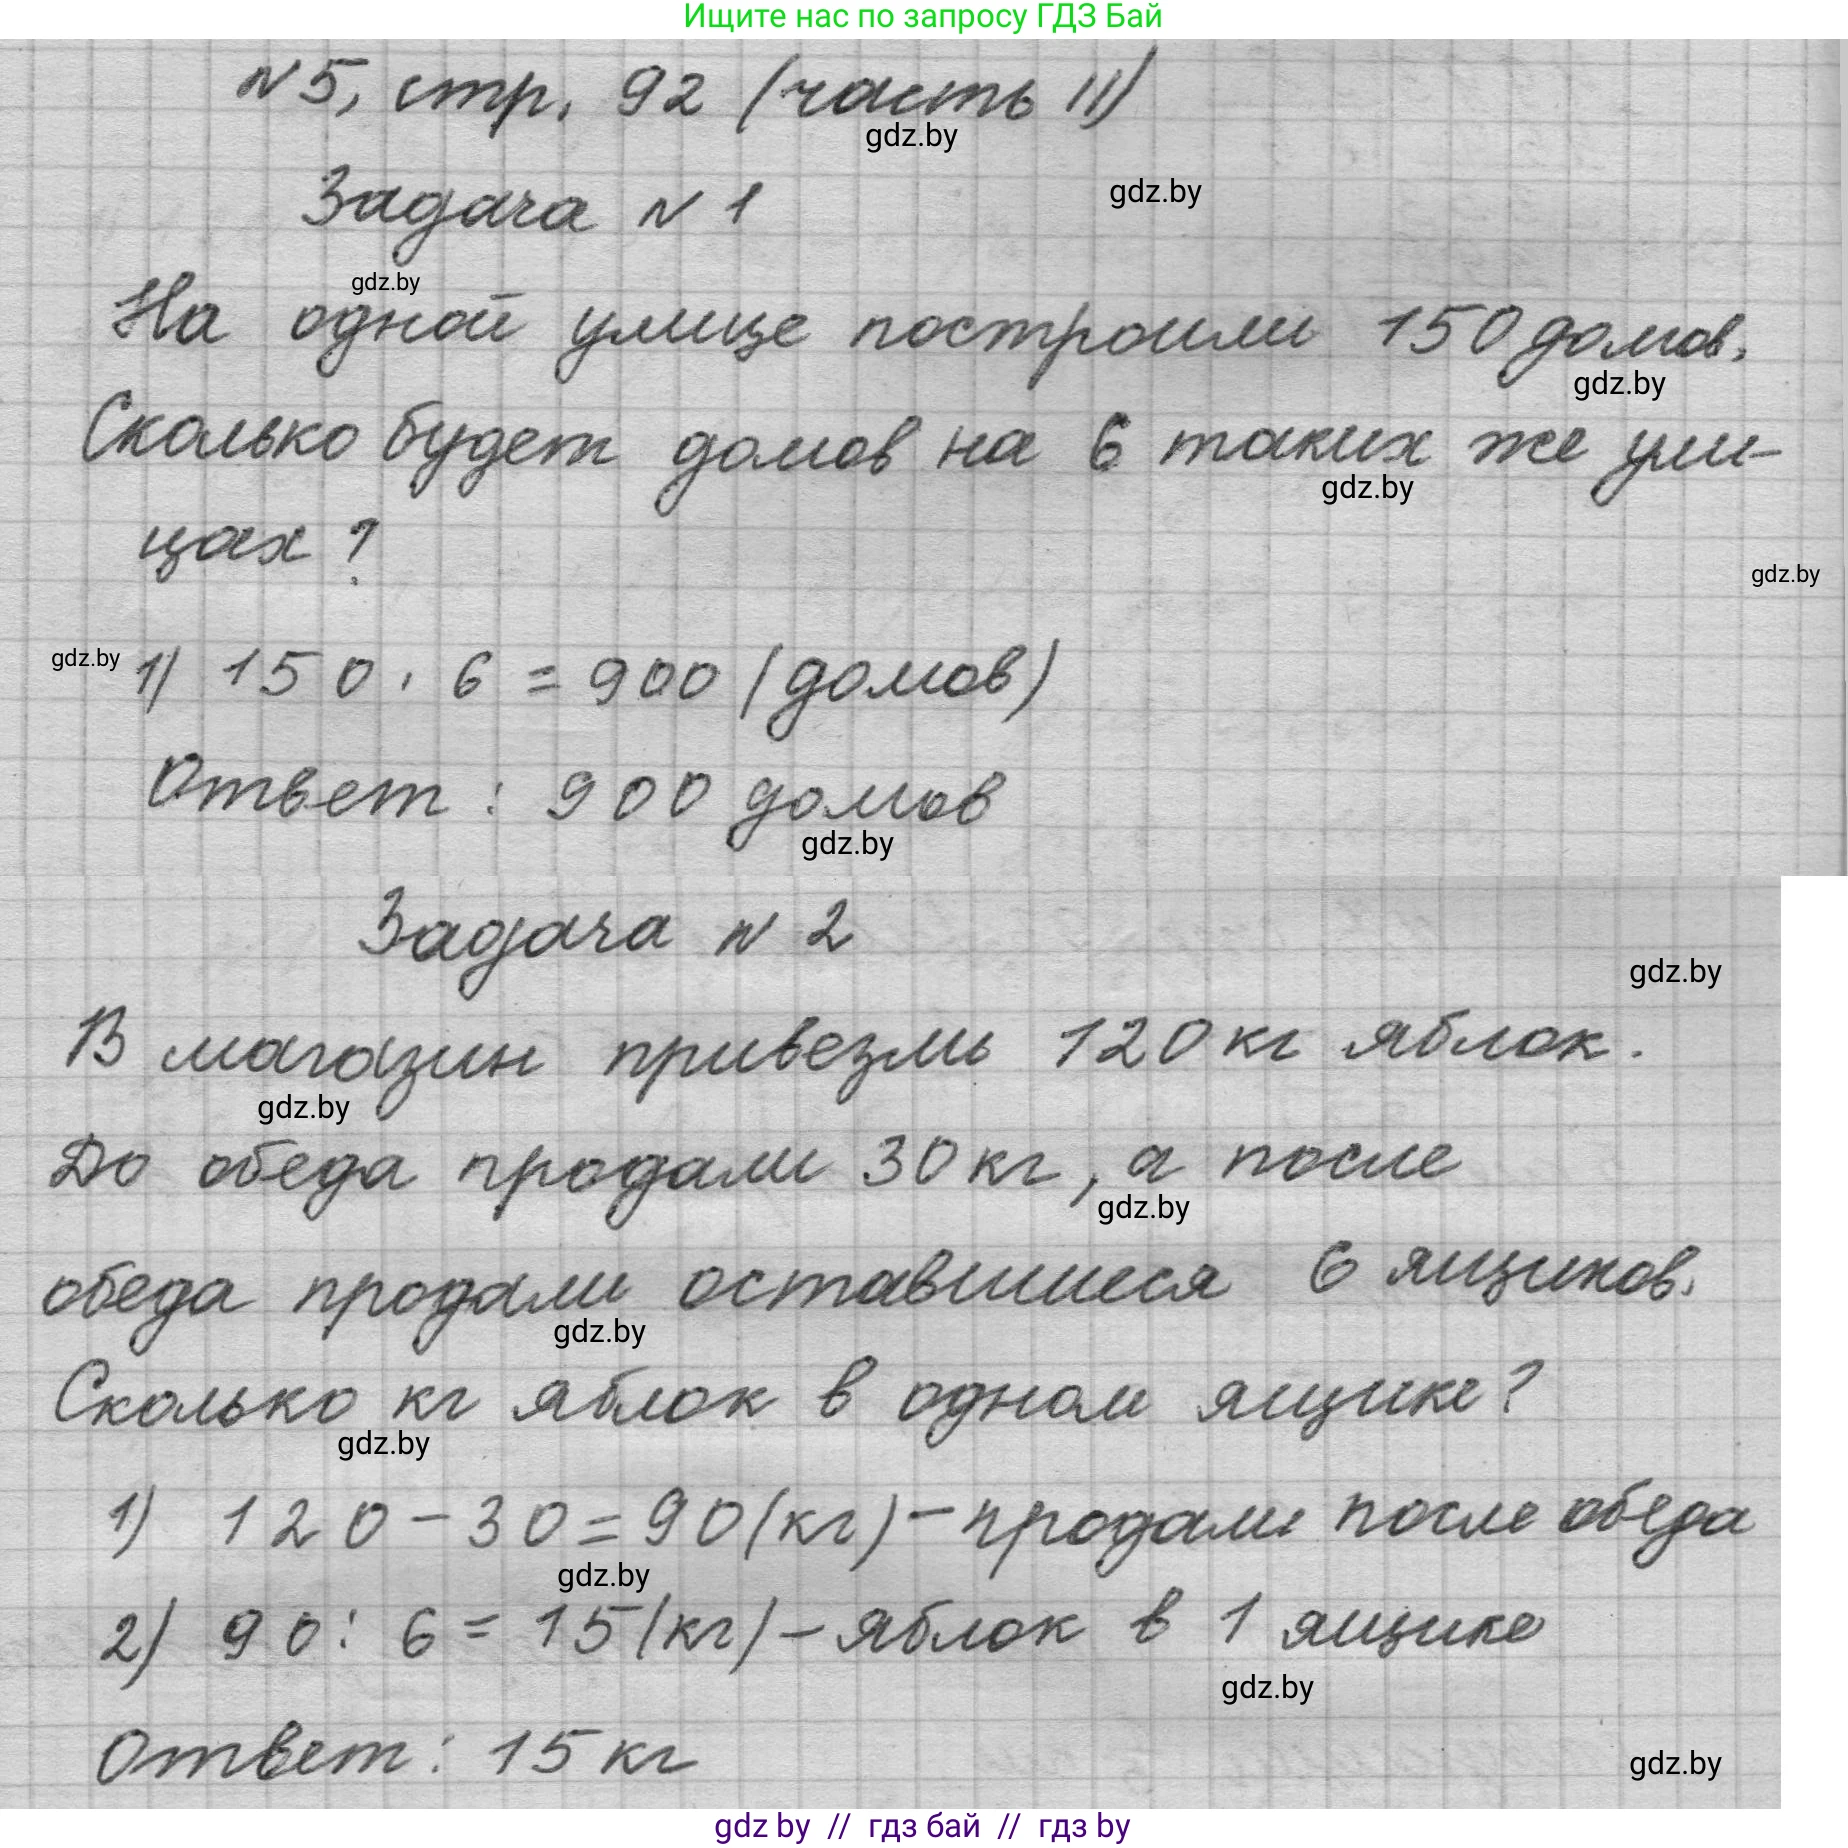 Ищите нас по запросу ГДЗ Бай
N5, стр. 92 (часть II)
gdz.by
Задача N 1
gdz.by
gdz.by
На одной улице построили 150 домов.
gdz.by
Сколько будет домов на 6 таких же ули-
gdz.by
цах?
gdz.by
gdz.by
1) 150 · 6 = 900 (домов)
Ответ: 900 домов
gdz.by
Задача N 2
gdz.by
В магазин привезли 120 кг яблок.
gdz.by
До обеда продали 30 кг, а после
gdz.by
обеда продали оставшиеся 6 ящиков.
gdz.by
Сколько кг яблок в одном ящике?
gdz.by
1) 120 - 30 = 90 (кг) - продали после обеда
gdz.by
2) 90 : 6 = 15 (кг) - яблок в 1 ящике
gdz.by
Ответ: 15 кг
gdz.by
gdz by // гдз бай // гдз by